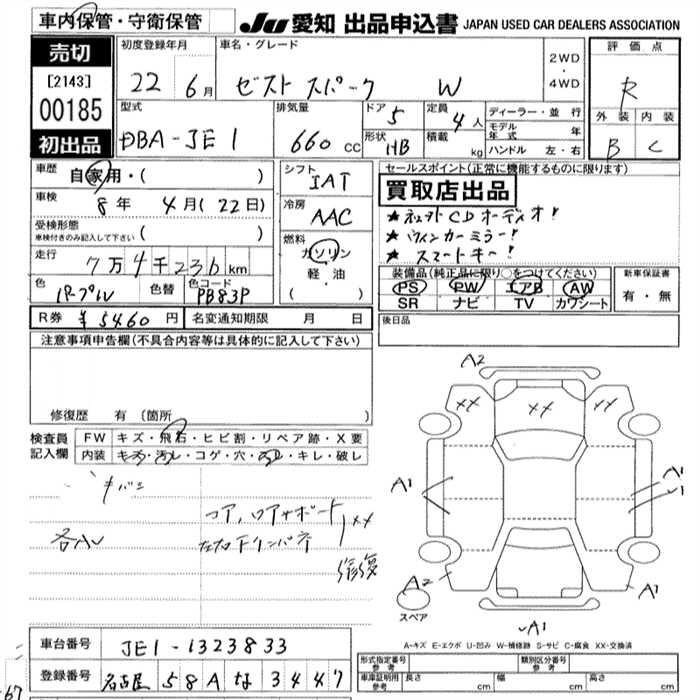 車内保管・守衛保管
JU 愛知 出品申込書 JAPAN USED CAR DEALERS ASSOCIATION
売切
[2143]
00185
初出品
初度登録年月
22 6月
車名・グレード
ゼスト スパーク W
2WD
・
4WD
評価点
R
外装 内装
B C
型式
DBA-JE1
排気量
660 cc
ドア 5
形状 HB
定員 4人
積載 kg
ディーラー・並行
モデル年式 年
ハンドル 左・右
車歴 自家用・( )
車検 8年 4月(22日)
受検形態
車検付きのみ記入して下さい ( )
走行 7万4千236km
色 パープルW 色替 色コード PB83P
R券 ¥5460円 名変通知期限 月 日
シフト
IAT
冷房
AAC
燃料
ガソリン
軽・油
( ・ )
セールスポイント(正常に機能するものに限ります)
買取店出品
★ CDオーディオ!
★ ウインカーミラー!
★ スマートキー!
装備品(純正品に限り○をつけてください)
PS PW エアB AW
SR ナビ TV カワシート
新車保証書
有・無
後日品
注意事項申告欄(不具合内容等は具体的に記入して下さい)
修復歴 有 (箇所 )
検査員記入欄
FW キズ・飛石・ヒビ割・リペア跡・X要
内装 キズ・汚レ・コゲ・穴・汚レ・キレ・破レ
各小
コア,ロアサポート
XX
修復
A2
XX XX XX
A1 A1
A2 A1
スペア
A1
A-キズ E-エクボ U-凹み W-補修跡 S-サビ C-腐食 XX-交換済
車台番号 JE1-1323833
登録番号 名古屋 58A な 3447
形式指定番号 参考
類別区分番号 参考
車庫証明用 参考 長さ cm 幅 cm 高さ cm
67